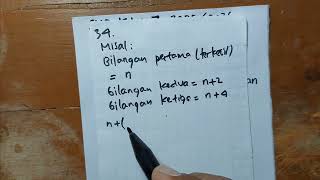 34.
Misal:
Bilangan pertama (terkecil)
= n
Bilangan kedua = n+2
Bilangan ketiga = n+4
n+(